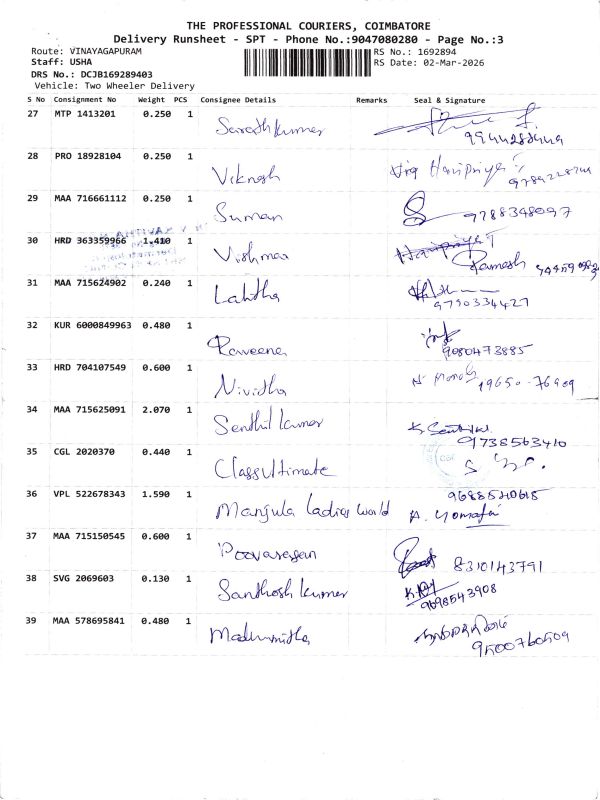 THE PROFESSIONAL COURIERS, COIMBATORE
Delivery Runsheet - SPT - Phone No.:9047080280 - Page No.:3
Route: VINAYAGAPURAM RS No.: 1692894
Staff: USHA RS Date: 02-Mar-2026
DRS No.: DCJB169289403
Vehicle: Two Wheeler Delivery
S No Consignment No Weight PCS Consignee Details Remarks Seal & Signature
27 MTP 1413201 0.250 1 Sarath kumar
28 PRO 18928104 0.250 1 Viknesh
29 MAA 716661112 0.250 1 Suman 9788348097
30 HRD 363359966 1.410 1 Vishmaa Ramesh
31 MAA 715624902 0.240 1 Lalitha 9790334427
32 KUR 6000849963 0.480 1 Raveena 9080473885
33 HRD 704107549 0.600 1 Nivitha
34 MAA 715625091 2.070 1 Senthil kumar 9738563410
35 CGL 2020370 0.440 1 Classultimate
36 VPL 522678343 1.590 1 Manjula ladies world
37 MAA 715150545 0.600 1 Poovarasan 8310143791
38 SVG 2069603 0.130 1 Santhosh kumar 9698543908
39 MAA 578695841 0.480 1 Madhumitha 9500760509